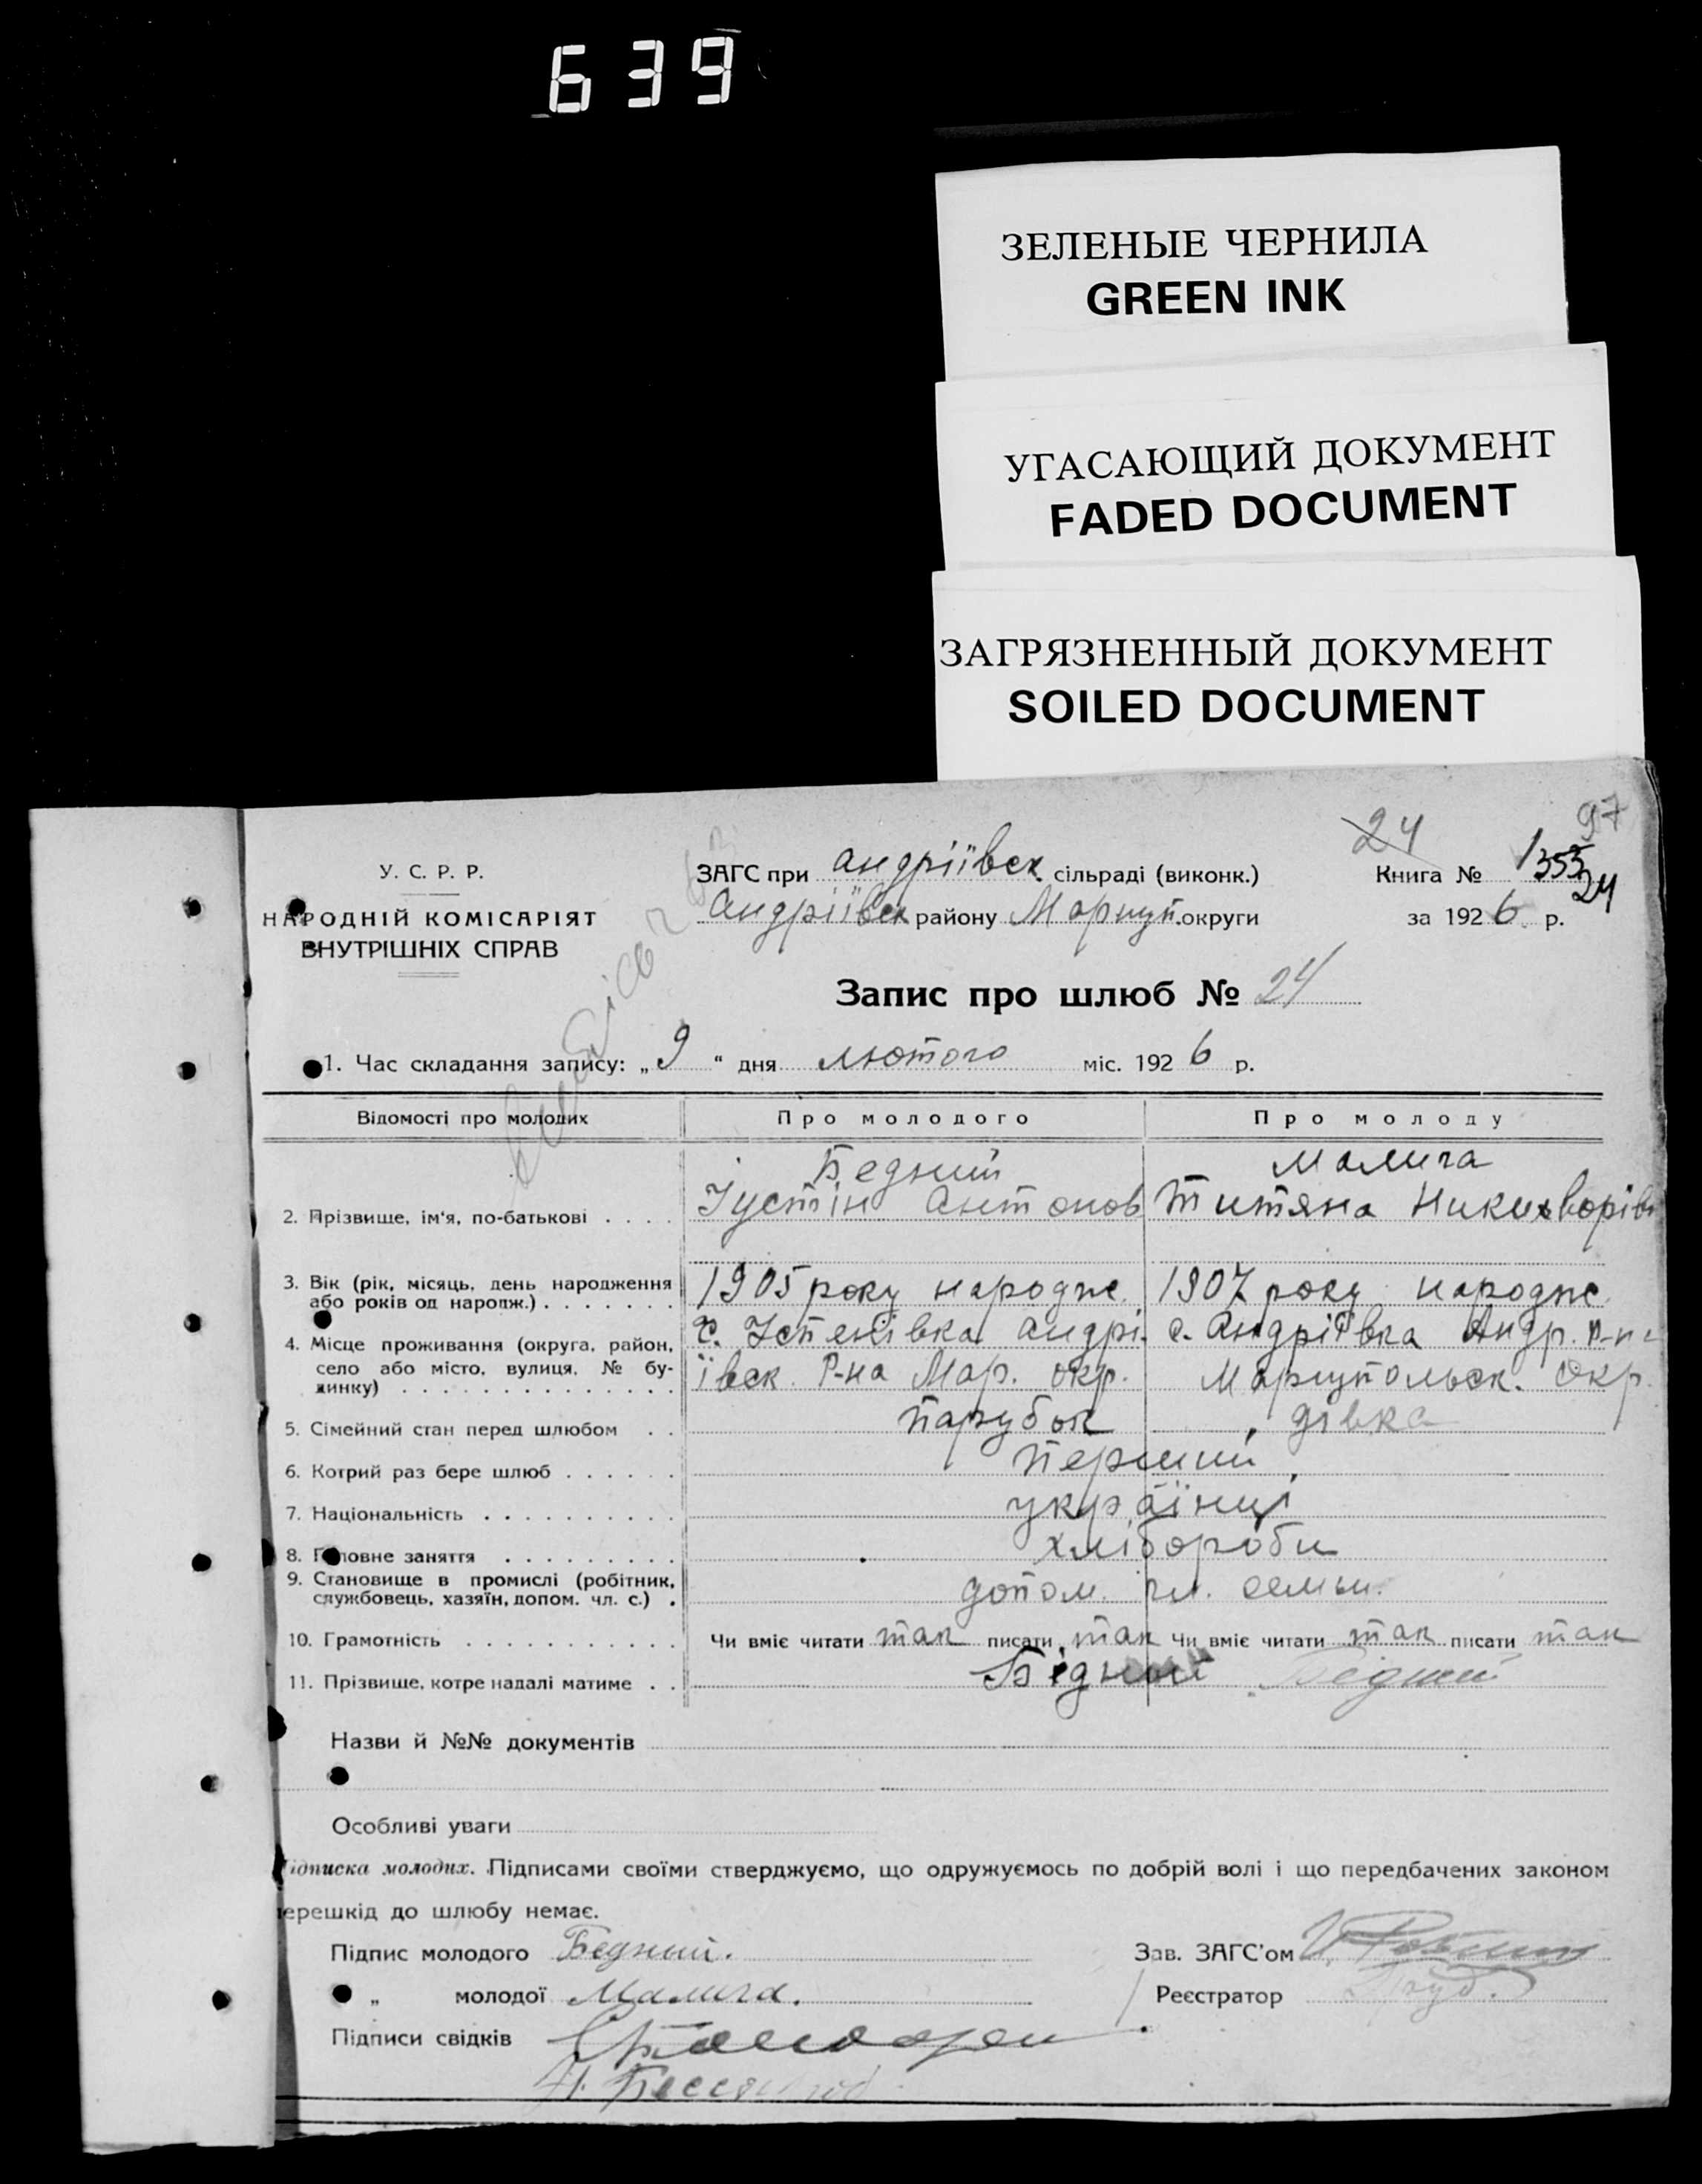 639
ЗЕЛЕНЫЕ ЧЕРНИЛА
GREEN INK
УГАСАЮЩИЙ ДОКУМЕНТ
FADED DOCUMENT
ЗАГРЯЗНЕННЫЙ ДОКУМЕНТ
SOILED DOCUMENT
97
24
У. С. Р. Р.
НАРОДНІЙ КОМІСАРІЯТ
ВНУТРІШНІХ СПРАВ
ЗАГС при Андріївск. сільраді (виконк.)
Андріївск району Маріуп. округи
Книга № 1353
24
за 1926 р.
Запис про шлюб № 24
1. Час складання запису: „9“ дня лютого міс. 1926 р.
Відомості про молодих Про молодого Про молоду
Бедний Малига
2. Прізвище, ім'я, по-батькові . . . . Іустін Антонов Титяна
3. Вік (рік, місяць, день народження або років од народж.) . . . . . . . 1905 року народж. 1907 року народж.
4. Місце проживання (округа, район, с. Успенівка Андрі- с. Андріївка Андр. р-н
село або місто, вулиця, № бу- ївск. Р-на Мар. окр. Маріупольск. Окр.
динку) . . . . . . . . . . . . . .
5. Сімейний стан перед шлюбом . . парубок дівка
6. Котрий раз бере шлюб . . . . . . перший
7. Національність . . . . . . . . . . українці
8. Головне заняття . . . . . . . . . хлібороби
9. Становище в промислі (робітник,
службовець, хазяїн, допом. чл. с.) . допом. чл. семьи.
10. Грамотність . . . . . . . . . . . Чи вміє читати так писати так Чи вміє читати так писати так
11. Прізвище, котре надалі матиме . . Бідний Бідний
Назви й №№ документів
Особливі уваги
Підписка молодих. Підписами своїми стверджуємо, що одружуємось по добрій волі і що передбачених законом
перешкід до шлюбу немає.
Підпис молодого Бедний. Зав. ЗАГС'ом
„ молодої Малига. Реєстратор
Підписи свідків